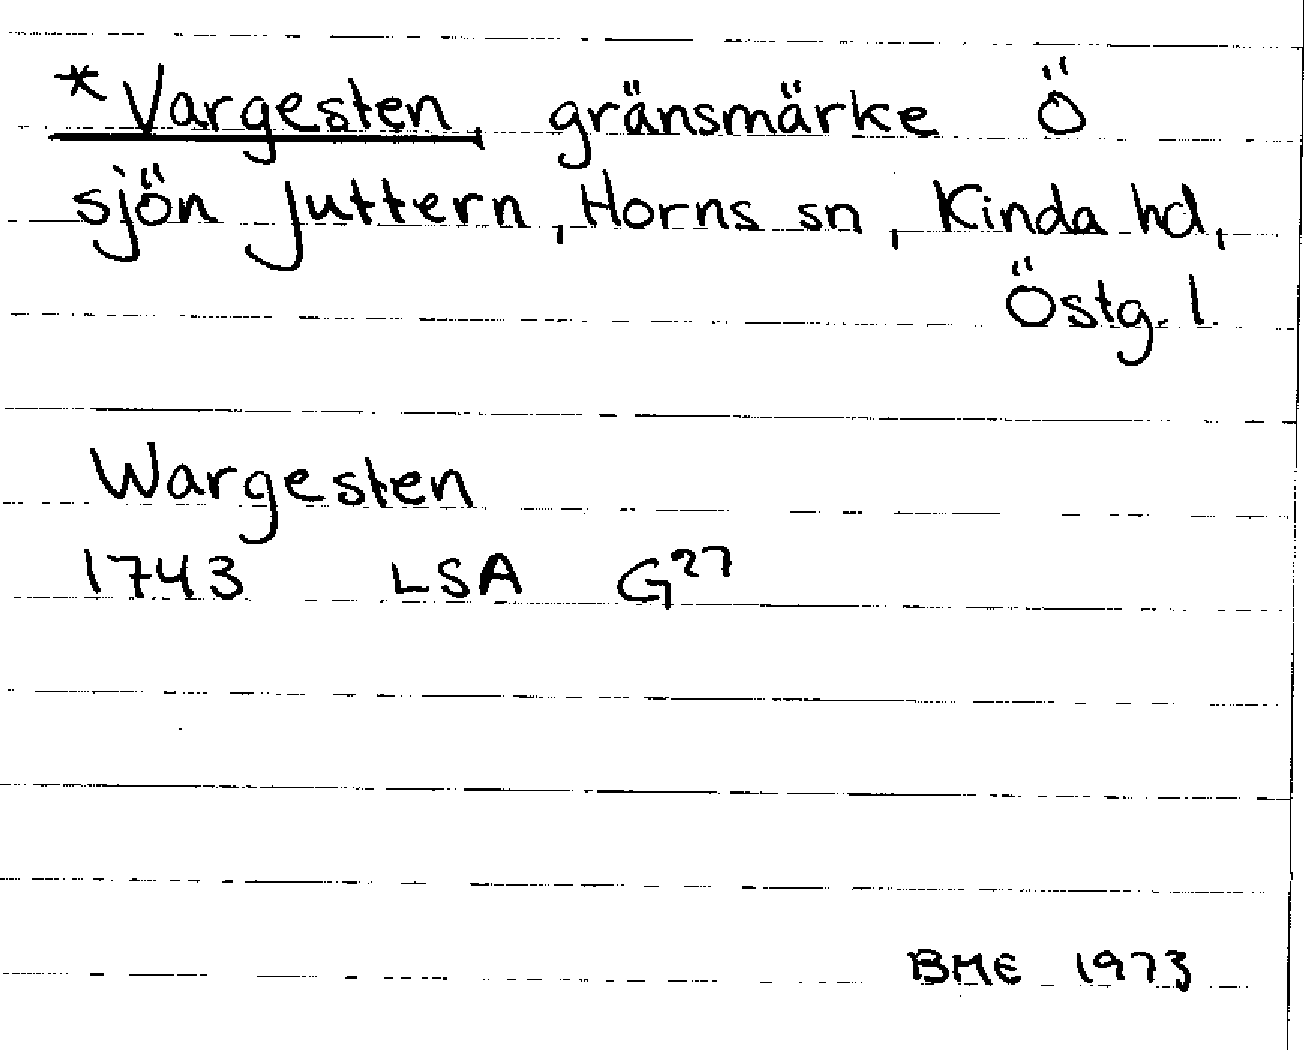 *Vargesten, gränsmärke Ö
sjön Juttern, Horns sn, Kinda hd,
Östg. l.
Wargesten
1743 LSA G27
BME 1973